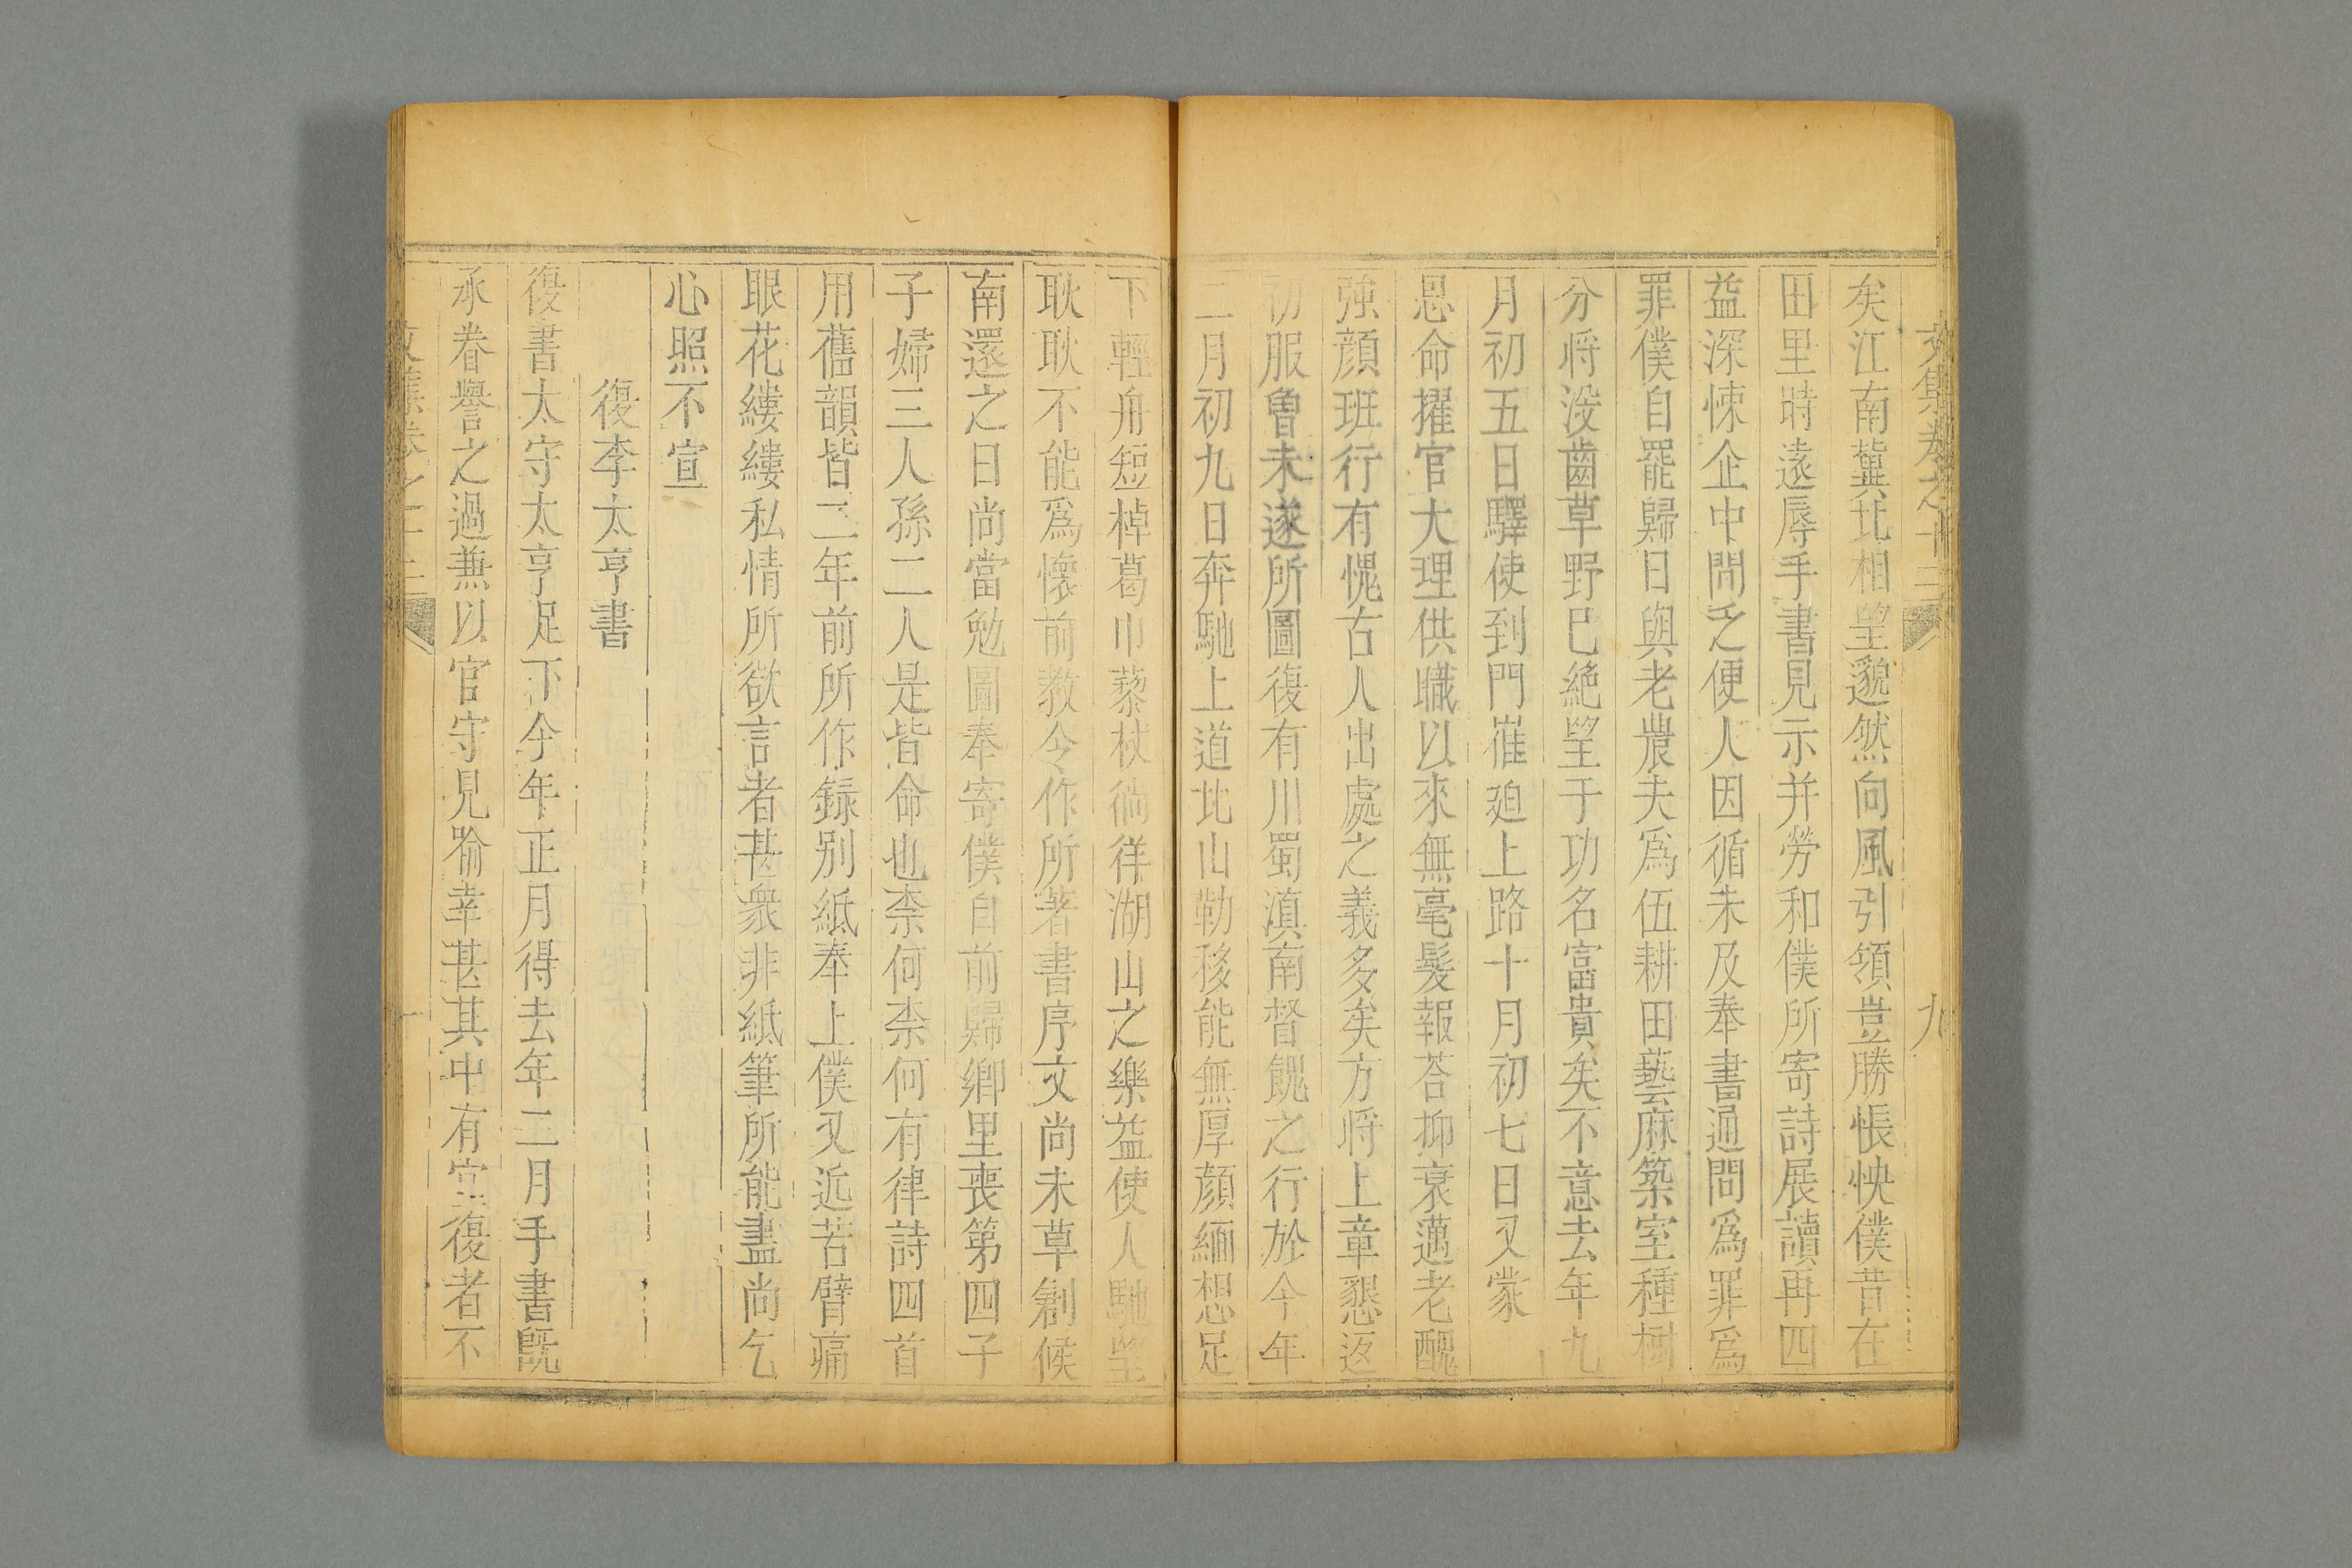 文集卷之十三
九
矣江南冀北相望邈然向風引領豈勝悵怏僕昔在
田里時遠辱手書見示并勞和僕所寄詩展讀再四
益深悚企中間乏便人因循未及奉書通問爲罪爲
罪僕自罷歸日與老農夫爲伍耕田藝麻築室種樹
分將没齒草野巳絶望于功名富貴矣不意去年九
月初五日驛使到門嶊廹上路十月初七日又蒙
恩命擢官大理供職以來無毫髮報荅抑衰邁老醜
強顔班行有愧古人出處之義多矣方將上章懇返
初服曾未遂所圖復有川蜀滇南督餽之行於今年
二月初九日奔馳上道北山勒移能無厚顔緬想足
下輕舟短棹葛巾藜杖徜徉湖山之樂益使人馳望
耿耿不能爲懷前教令作所著書序文尚未草創候
南還之日尚當勉圖奉寄僕自前歸鄉里喪第四子
子婦三人孫二人是皆命也柰何柰何有律詩四首
用舊韻皆二年前所作錄别紙奉上僕又近苦臂痛
眼花縷縷私情所欲言者甚衆非紙筆所能盡尚乞
心照不宣
復李太亨書
復書太守太亨足下今年正月得去年二月手書旣
承眷譽之過兼以官守見喻幸甚其中有宜復者不
文集卷之十三